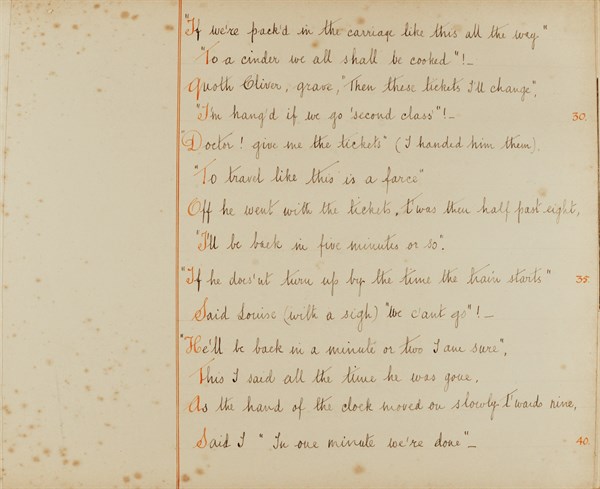 "If we're pack'd in the carriage like this all the way"
"To a cinder we all shall be cooked"!—
Quoth Oliver, grave, "Then these tickets I'll change",
"I'm hang'd if we go 'second class'"!— 30.
"Doctor! give me the tickets" (I handed him them).
"To travel like this is a farce"
Off he went with the tickets. T'was then half past eight,
"I'll be back in five minutes or so".
"If he does'nt turn up by the time the train starts" 35.
Said Louise (with a sigh) "We c'ant go"!—
"He'll be back in a minute or two I am sure",
This I said all the time he was gone.
As the hand of the clock moved on slowly t'wards nine,
Said I "In one minute we're done"— 40.